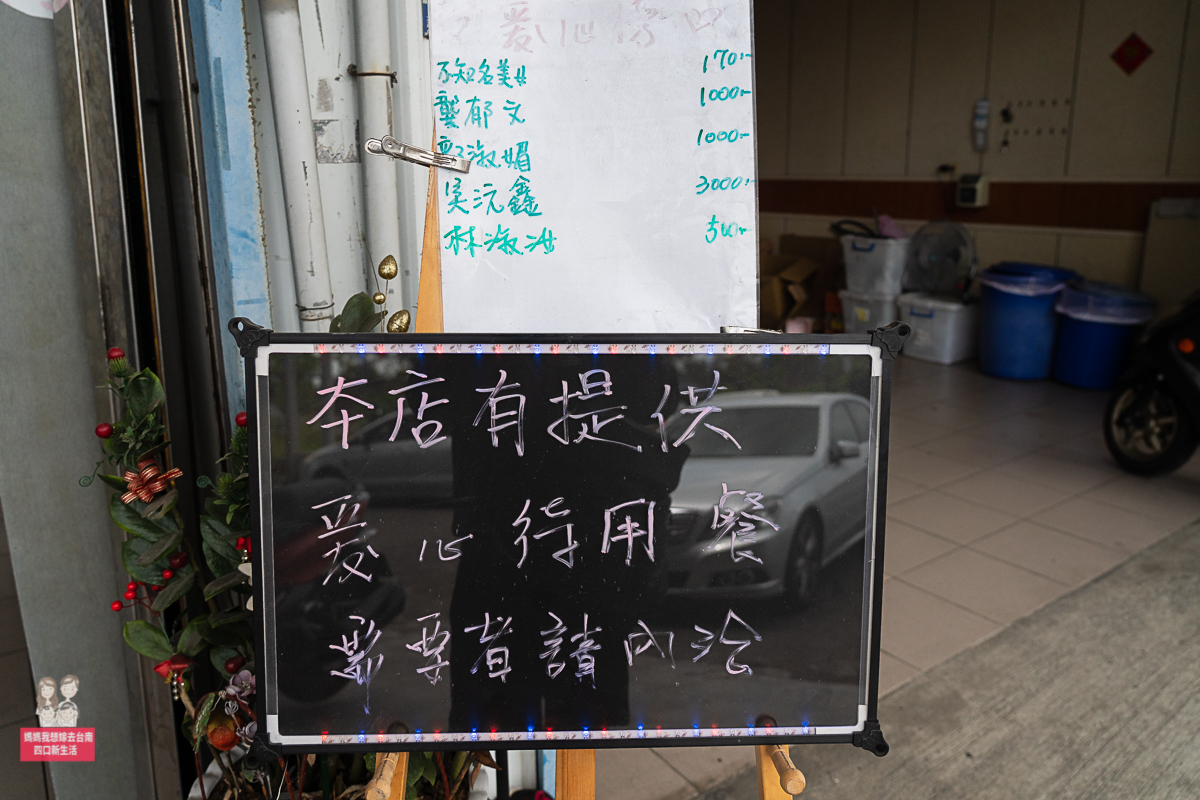 愛心
不知名美女 170.-
龔郁文 1000.-
郭淑媚 1000.-
吳沅鑫 3000.-
林淑 500.-
本店有提供
爱心待用餐
需要者請內洽
媽媽我想嫁去台南
四口新生活